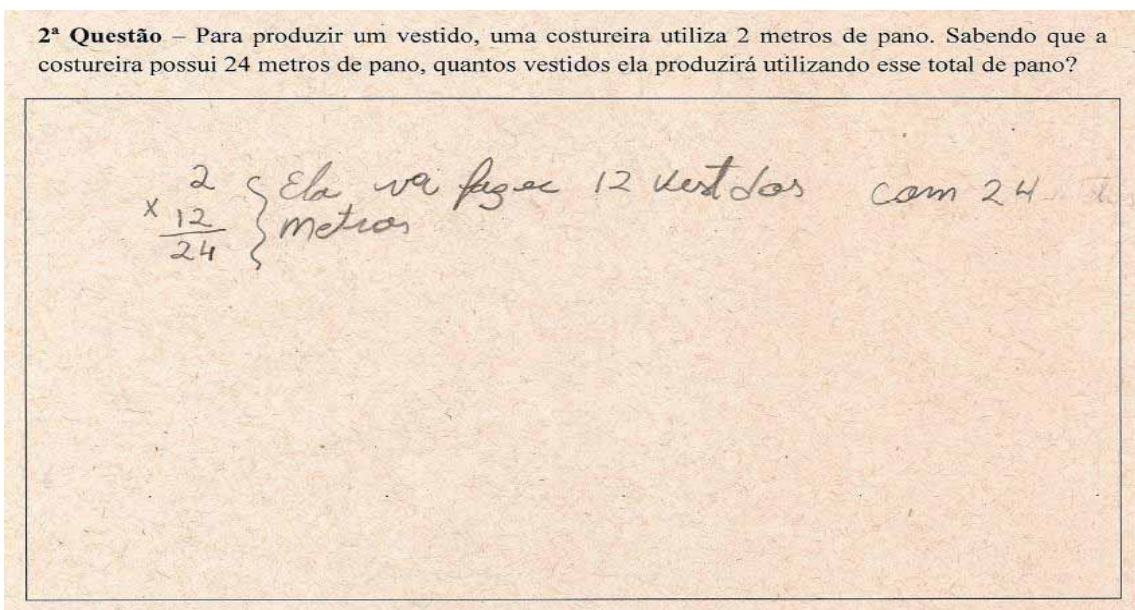 2ª Questão – Para produzir um vestido, uma costureira utiliza 2 metros de pano. Sabendo que a
costureira possui 24 metros de pano, quantos vestidos ela produzirá utilizando esse total de pano?
2 { Ela va fazer 12 vestdos com 24
x 12 { metros
24